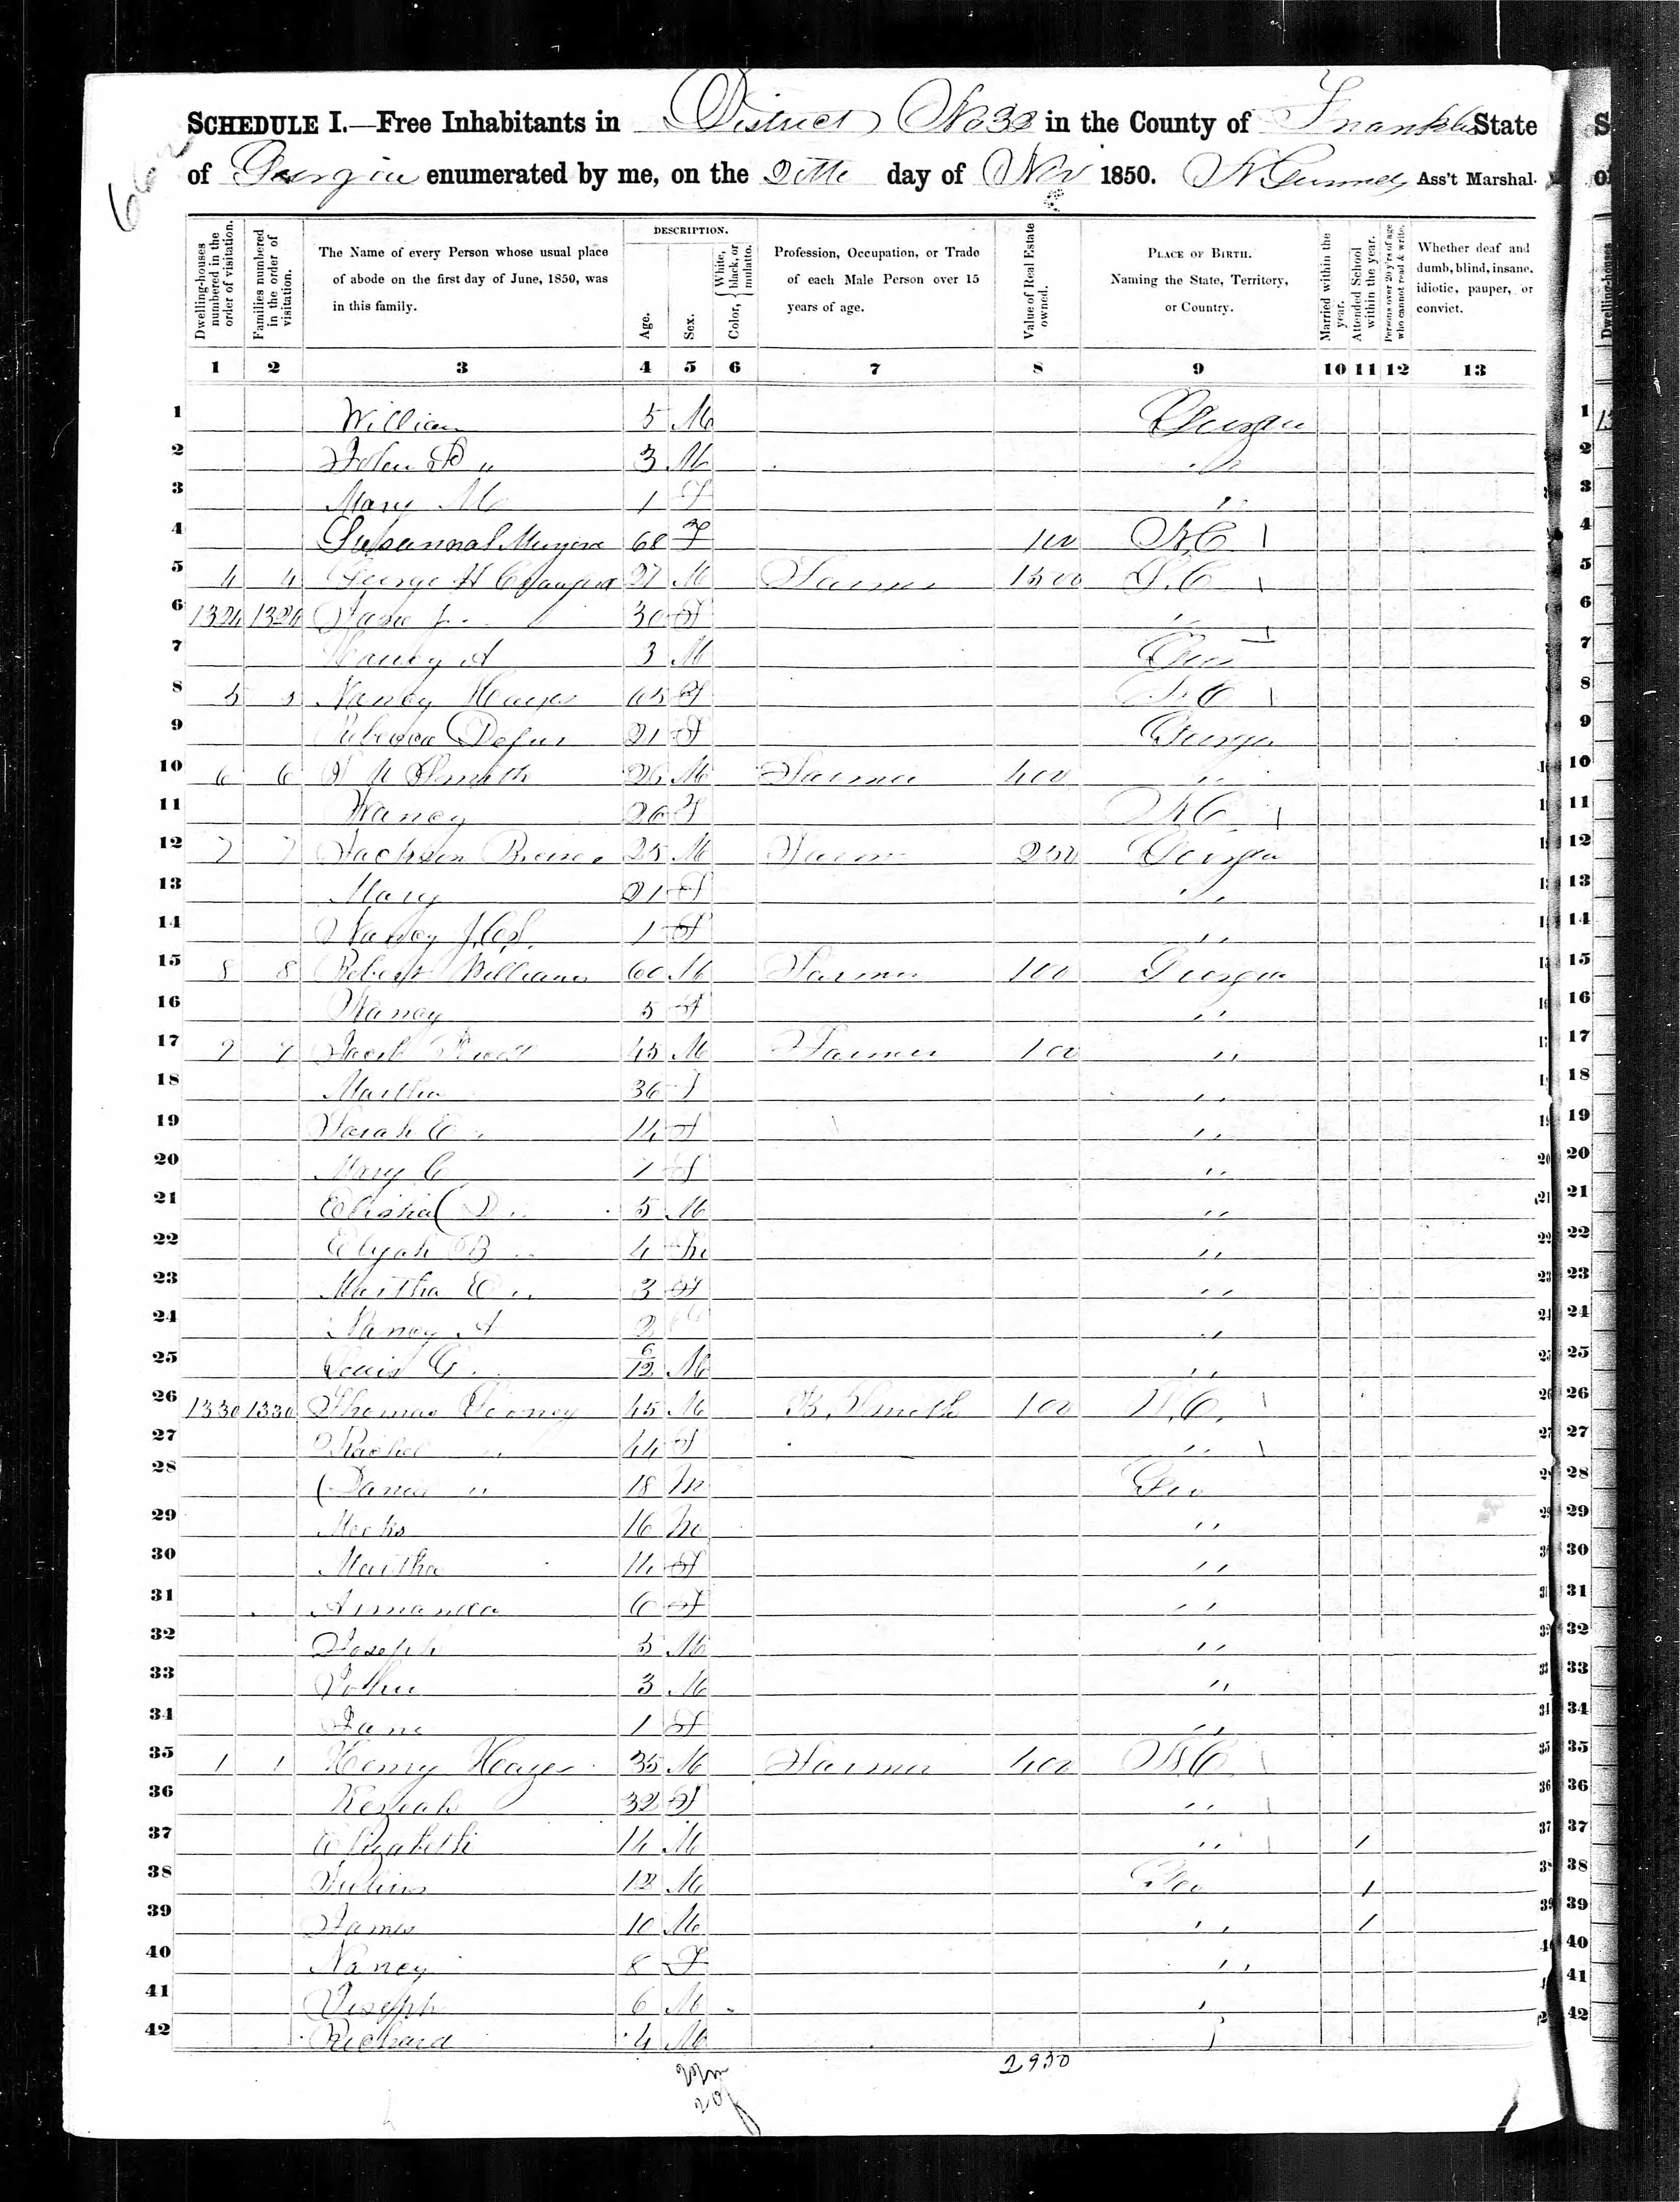 SCHEDULE I.—Free Inhabitants in District No 33 in the County of Franklin State
of Georgia enumerated by me, on the day of Nov 1850. Ass't Marshal.
Dwelling-houses numbered in the order of visitation.
Families numbered in the order of visitation.
The Name of every Person whose usual place of abode on the first day of June, 1850, was in this family.
DESCRIPTION.
Age.
Sex.
Color, { White, black, or mulatto.
Profession, Occupation, or Trade of each Male Person over 15 years of age.
Value of Real Estate owned.
PLACE OF BIRTH. Naming the State, Territory, or Country.
Married within the year.
Attended School within the year.
Persons over 20 y'rs of age who cannot read & write.
Whether deaf and dumb, blind, insane, idiotic, pauper, or convict.
1 2 3 4 5 6 7 8 9 10 11 12 13
1 William 5 M Georgia
2 John " 3 M "
3 Mary M 1 F "
4 68 F 100 \
5 4 4 George H 27 M Farmer 1500 S.C \
6 1324 1324 Jane 30 F "
7 3 M Geo
8 5 5 Nancy Hayes 65 F \
9 21 F Georgia
10 6 6 Smith 26 M Farmer 400 "
11 Nancy 26 F N.C \
12 7 7 Jackson 25 M Farmer 250 Georgia
13 Mary 21 F "
14 Nancy 1 F "
15 8 8 Robert Williams 60 M Farmer 100 Georgia
16 Nancy 5 F "
17 45 M Farmer 100 "
18 Martha 36 F "
19 Sarah E 14 F "
20 Mary C 7 F "
21 Elisha D " 5 M "
22 Elijah B " 4 M "
23 Martha E " 3 F "
24 Nancy A 2 "
25 Louis G 6/12 M "
26 1330 1330 Thomas 45 M B. Smith 100 \
27 Rachel " 44 F " \
28 Daniel " 18 M Geo
29 Meeks 16 M "
30 Martha 14 F "
31 Ammanda 6 F "
32 Joseph 5 M "
33 John 3 M "
34 Jane 1 F "
35 1 1 Henry Hayes 35 M Farmer 400 N.C \
36 Keziah 32 F " \
37 Elizabeth 14 M " \ 1
38 Julius 12 M Geo 1
39 James 10 M " 1
40 Nancy 8 F "
41 Joseph 6 M "
42 Richard 4 M "
2950